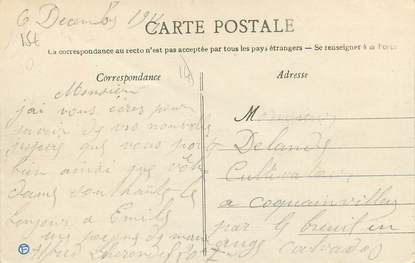 6 Decembre 191
CARTE POSTALE
La correspondance au recto n'est pas acceptée par tous les pays étrangers — Se renseigner à la Poste
Correspondance
Adresse
Monsieur
j'ai vous écris pour
savoir de vos nouvelles
j'espère que vous
bien ainsi que votre
dame
bonjour a Emile
Monsieur
Delande
Cultivateur
a coquainvilliers
par le breuil en
auge calvados